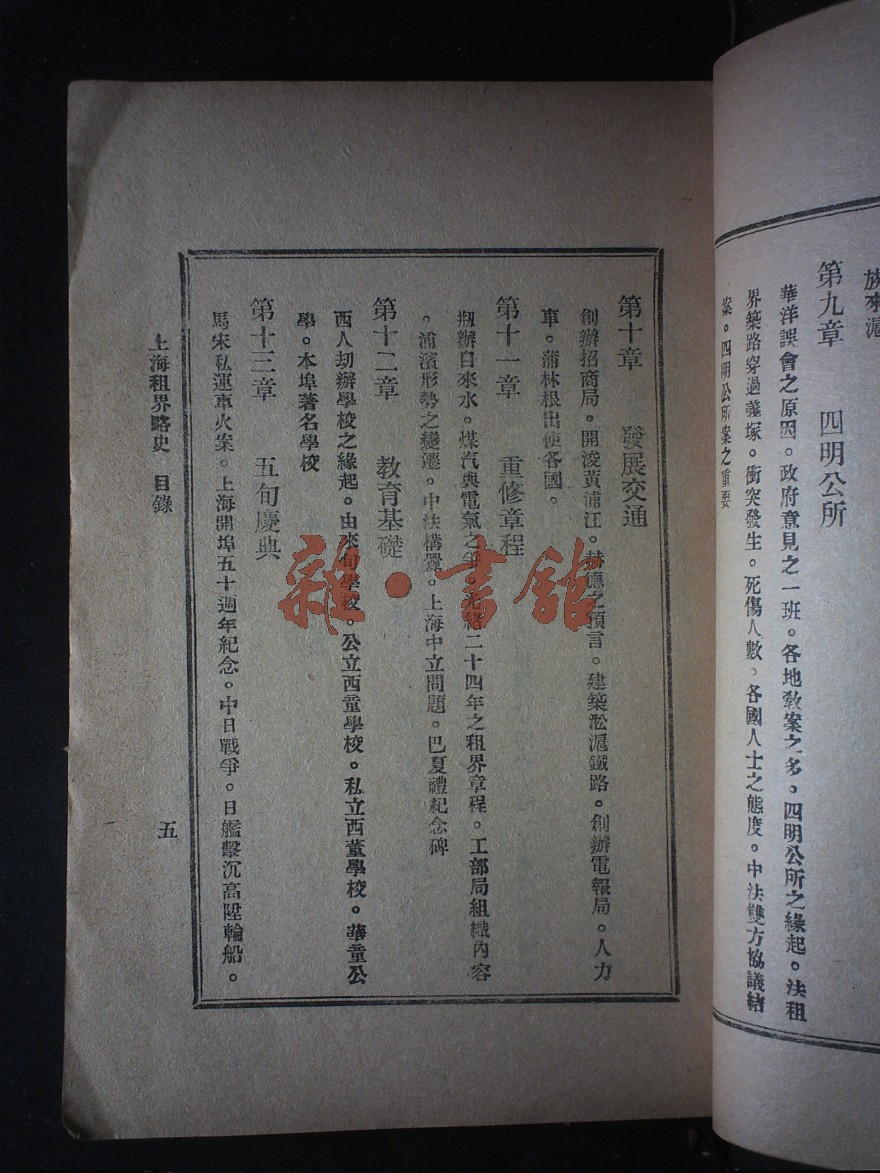 族來滬
第九章　四明公所
華洋誤會之原因。政府意見之一班。各地敎案之多。四明公所之緣起。法租
界築路穿過義塚。衝突發生。死傷人數。各國人士之態度。中法雙方協議結
案。四明公所案之重要
第十章　發展交通
創辦招商局。開浚黃浦江。赫德之預言。建築淞滬鐵路。創辦電報局。人力
車。蒲林根出使各國。
第十一章　重修章程
創辦自來水。煤汽與電氣之爭。光緒二十四年之租界章程。工部局組織內容
。浦濱形勢之變遷。中法構釁。上海中立問題。巴夏禮紀念碑
第十二章　教育基礎
西人刱辦學校之緣起。由來旬學校。公立西童學校。私立西董學校。華童公
學。本埠著名學校
第十三章　五旬慶典
馬宋私運車火案。上海開埠五十週年紀念。中日戰爭。日艦擊沉高陞輪船。
上海租界略史　目錄
五
雜·書館